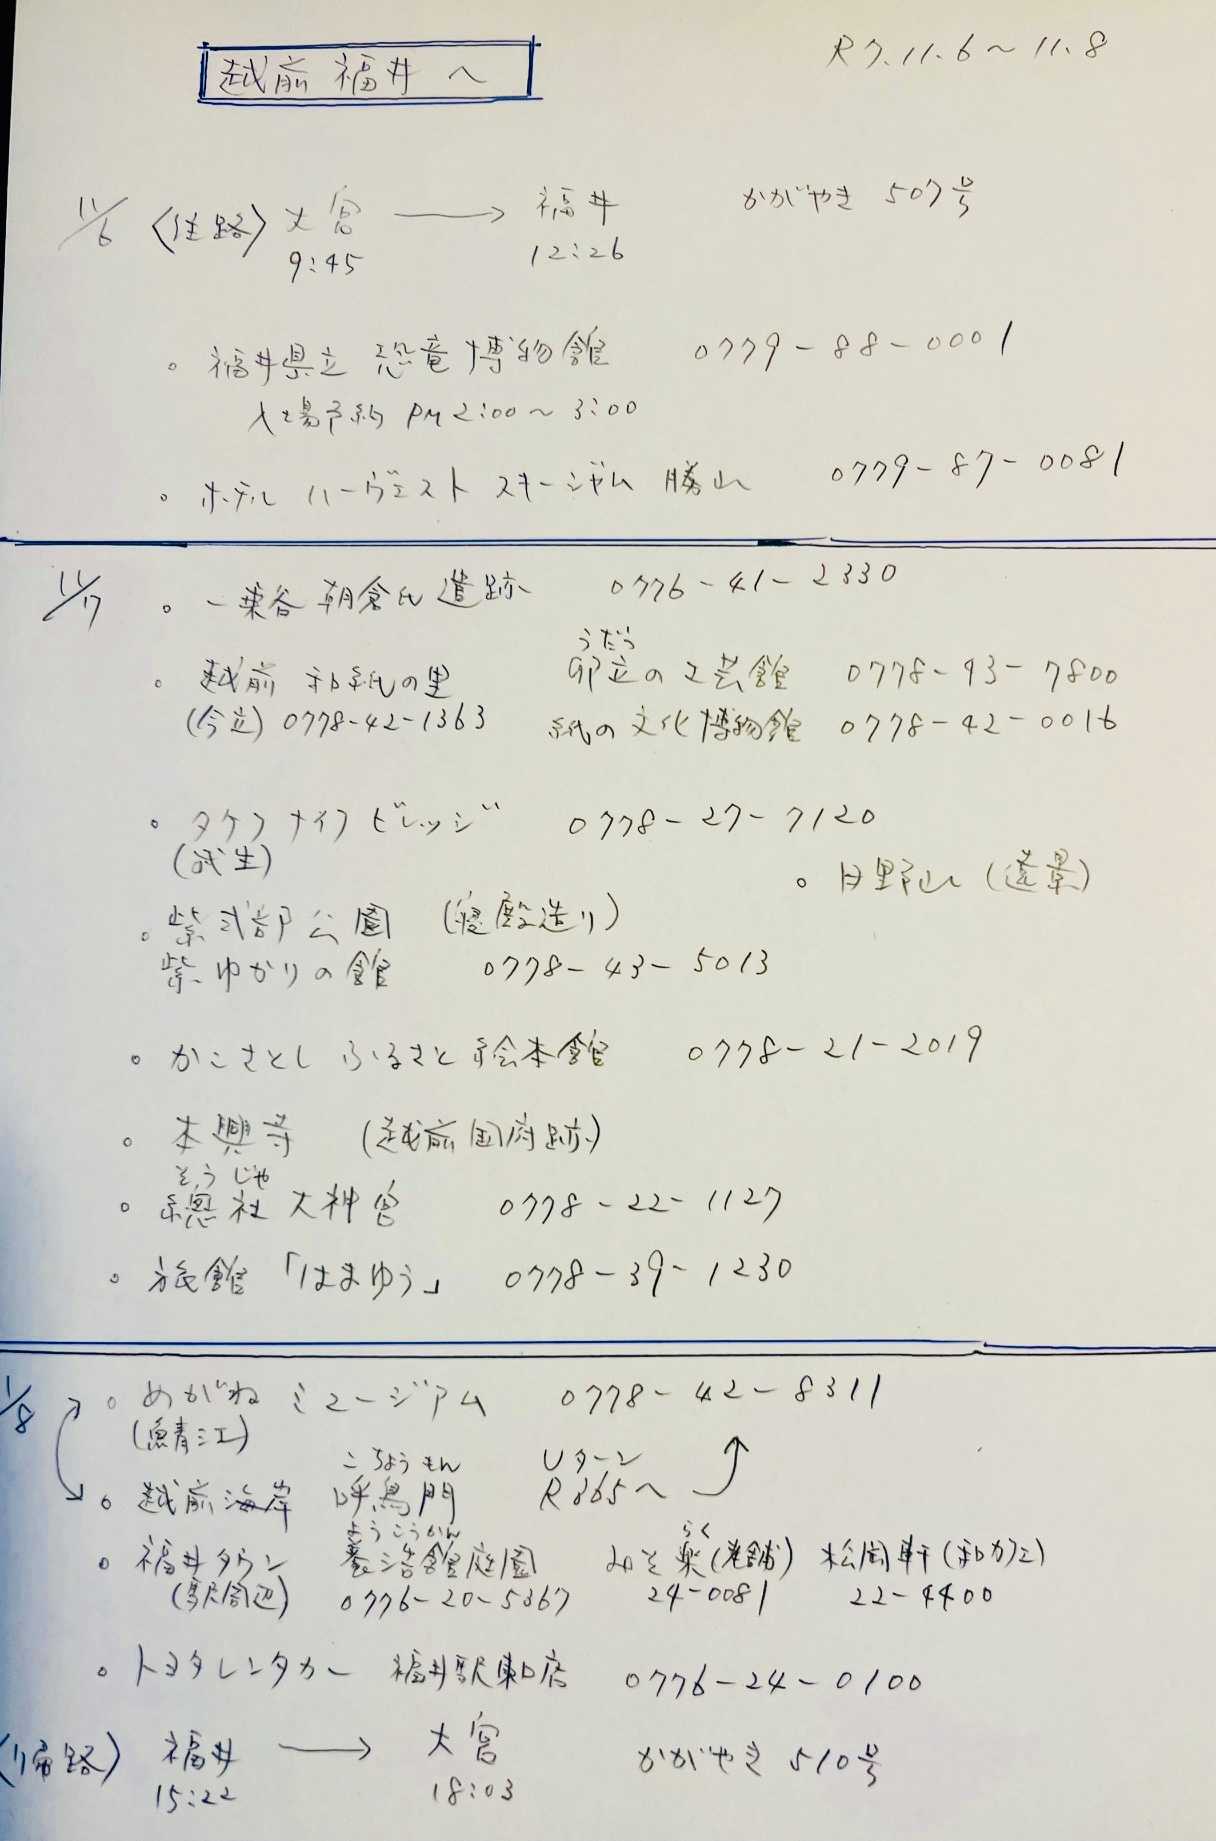 越前 福井 へ
R7.11.6～11.8
11/6 〈往路〉 大宮 → 福井 かがやき 507号
9:45 12:26
。福井県立 恐竜博物館 0779-88-0001
入場予約 PM 2:00～3:00
。ホテル ハーヴェスト スキージャム 勝山 0779-87-0081
11/7 。一乗谷 朝倉氏 遺跡 0776-41-2330
うだつ
。越前 和紙の里 卯立の工芸館 0778-43-7800
(今立) 0778-42-1363 紙の文化博物館 0778-42-0016
。タケフナイフビレッジ 0778-27-7120
(武生)
。日野山 (遠景)
。紫式部公園 (寝殿造り)
紫ゆかりの館 0778-43-5013
。かこさとし ふるさと絵本館 0778-21-2019
。本興寺 (越前国府跡)
そうじゃ
。總社 大神宮 0778-22-1127
。旅館「はまゆう」 0778-39-1230
1/8 。めがね ミュージアム 0778-42-8311
(鯖江)
こちょうもん Uターン
。越前海岸 呼鳥門 R365へ
ようこうかん らく
。福井タウン 養浩館庭園 みそ楽(老舗) 松岡軒(和カフェ)
(駅周辺) 0776-20-5367 24-0081 22-4400
。トヨタレンタカー 福井駅東口店 0776-24-0100
(帰路) 福井 → 大宮 かがやき 510号
15:22 18:03